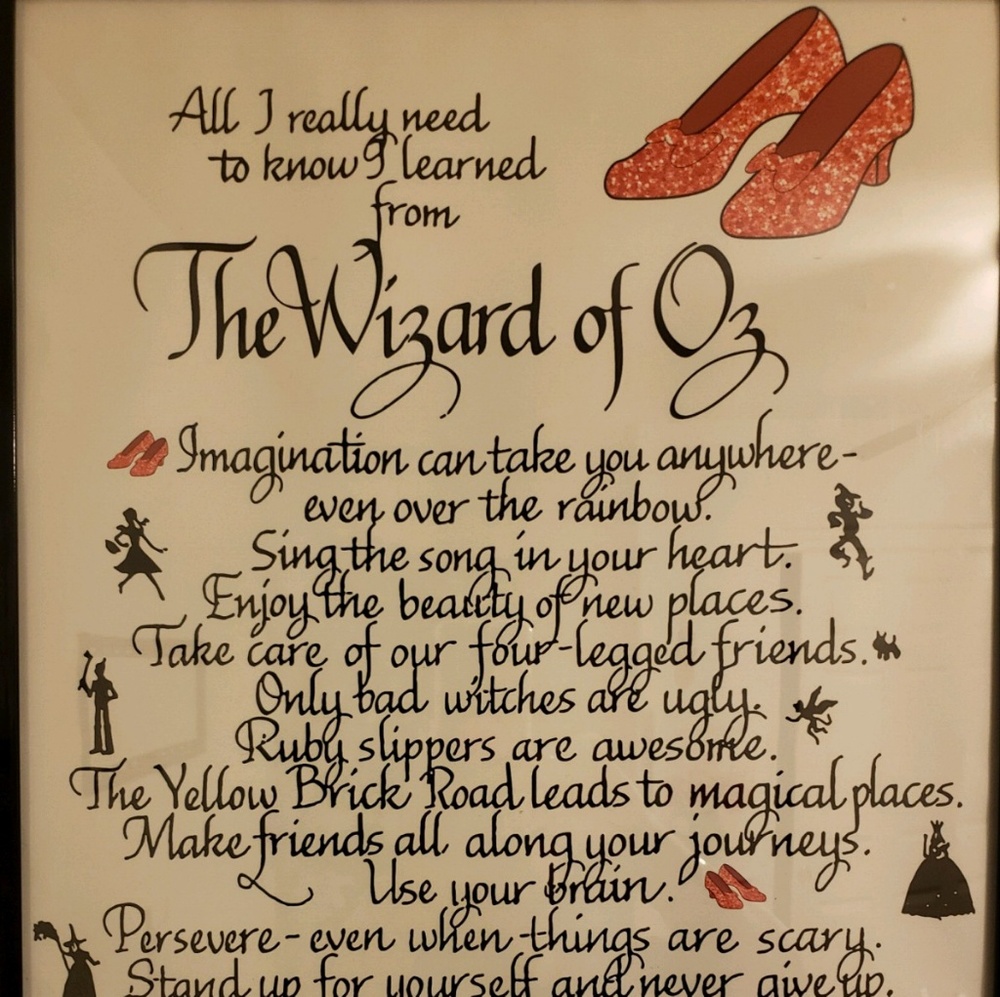 All I really need
to know I learned
from
The Wizard of Oz
Imagination can take you anywhere-
even over the rainbow.
Sing the song in your heart.
Enjoy the beauty of new places.
Take care of our four-legged friends.
Only bad witches are ugly.
Ruby slippers are awesome.
The Yellow Brick Road leads to magical places.
Make friends all along your journeys.
Use your brain.
Persevere-even when things are scary.
Stand up for yourself and never give up.